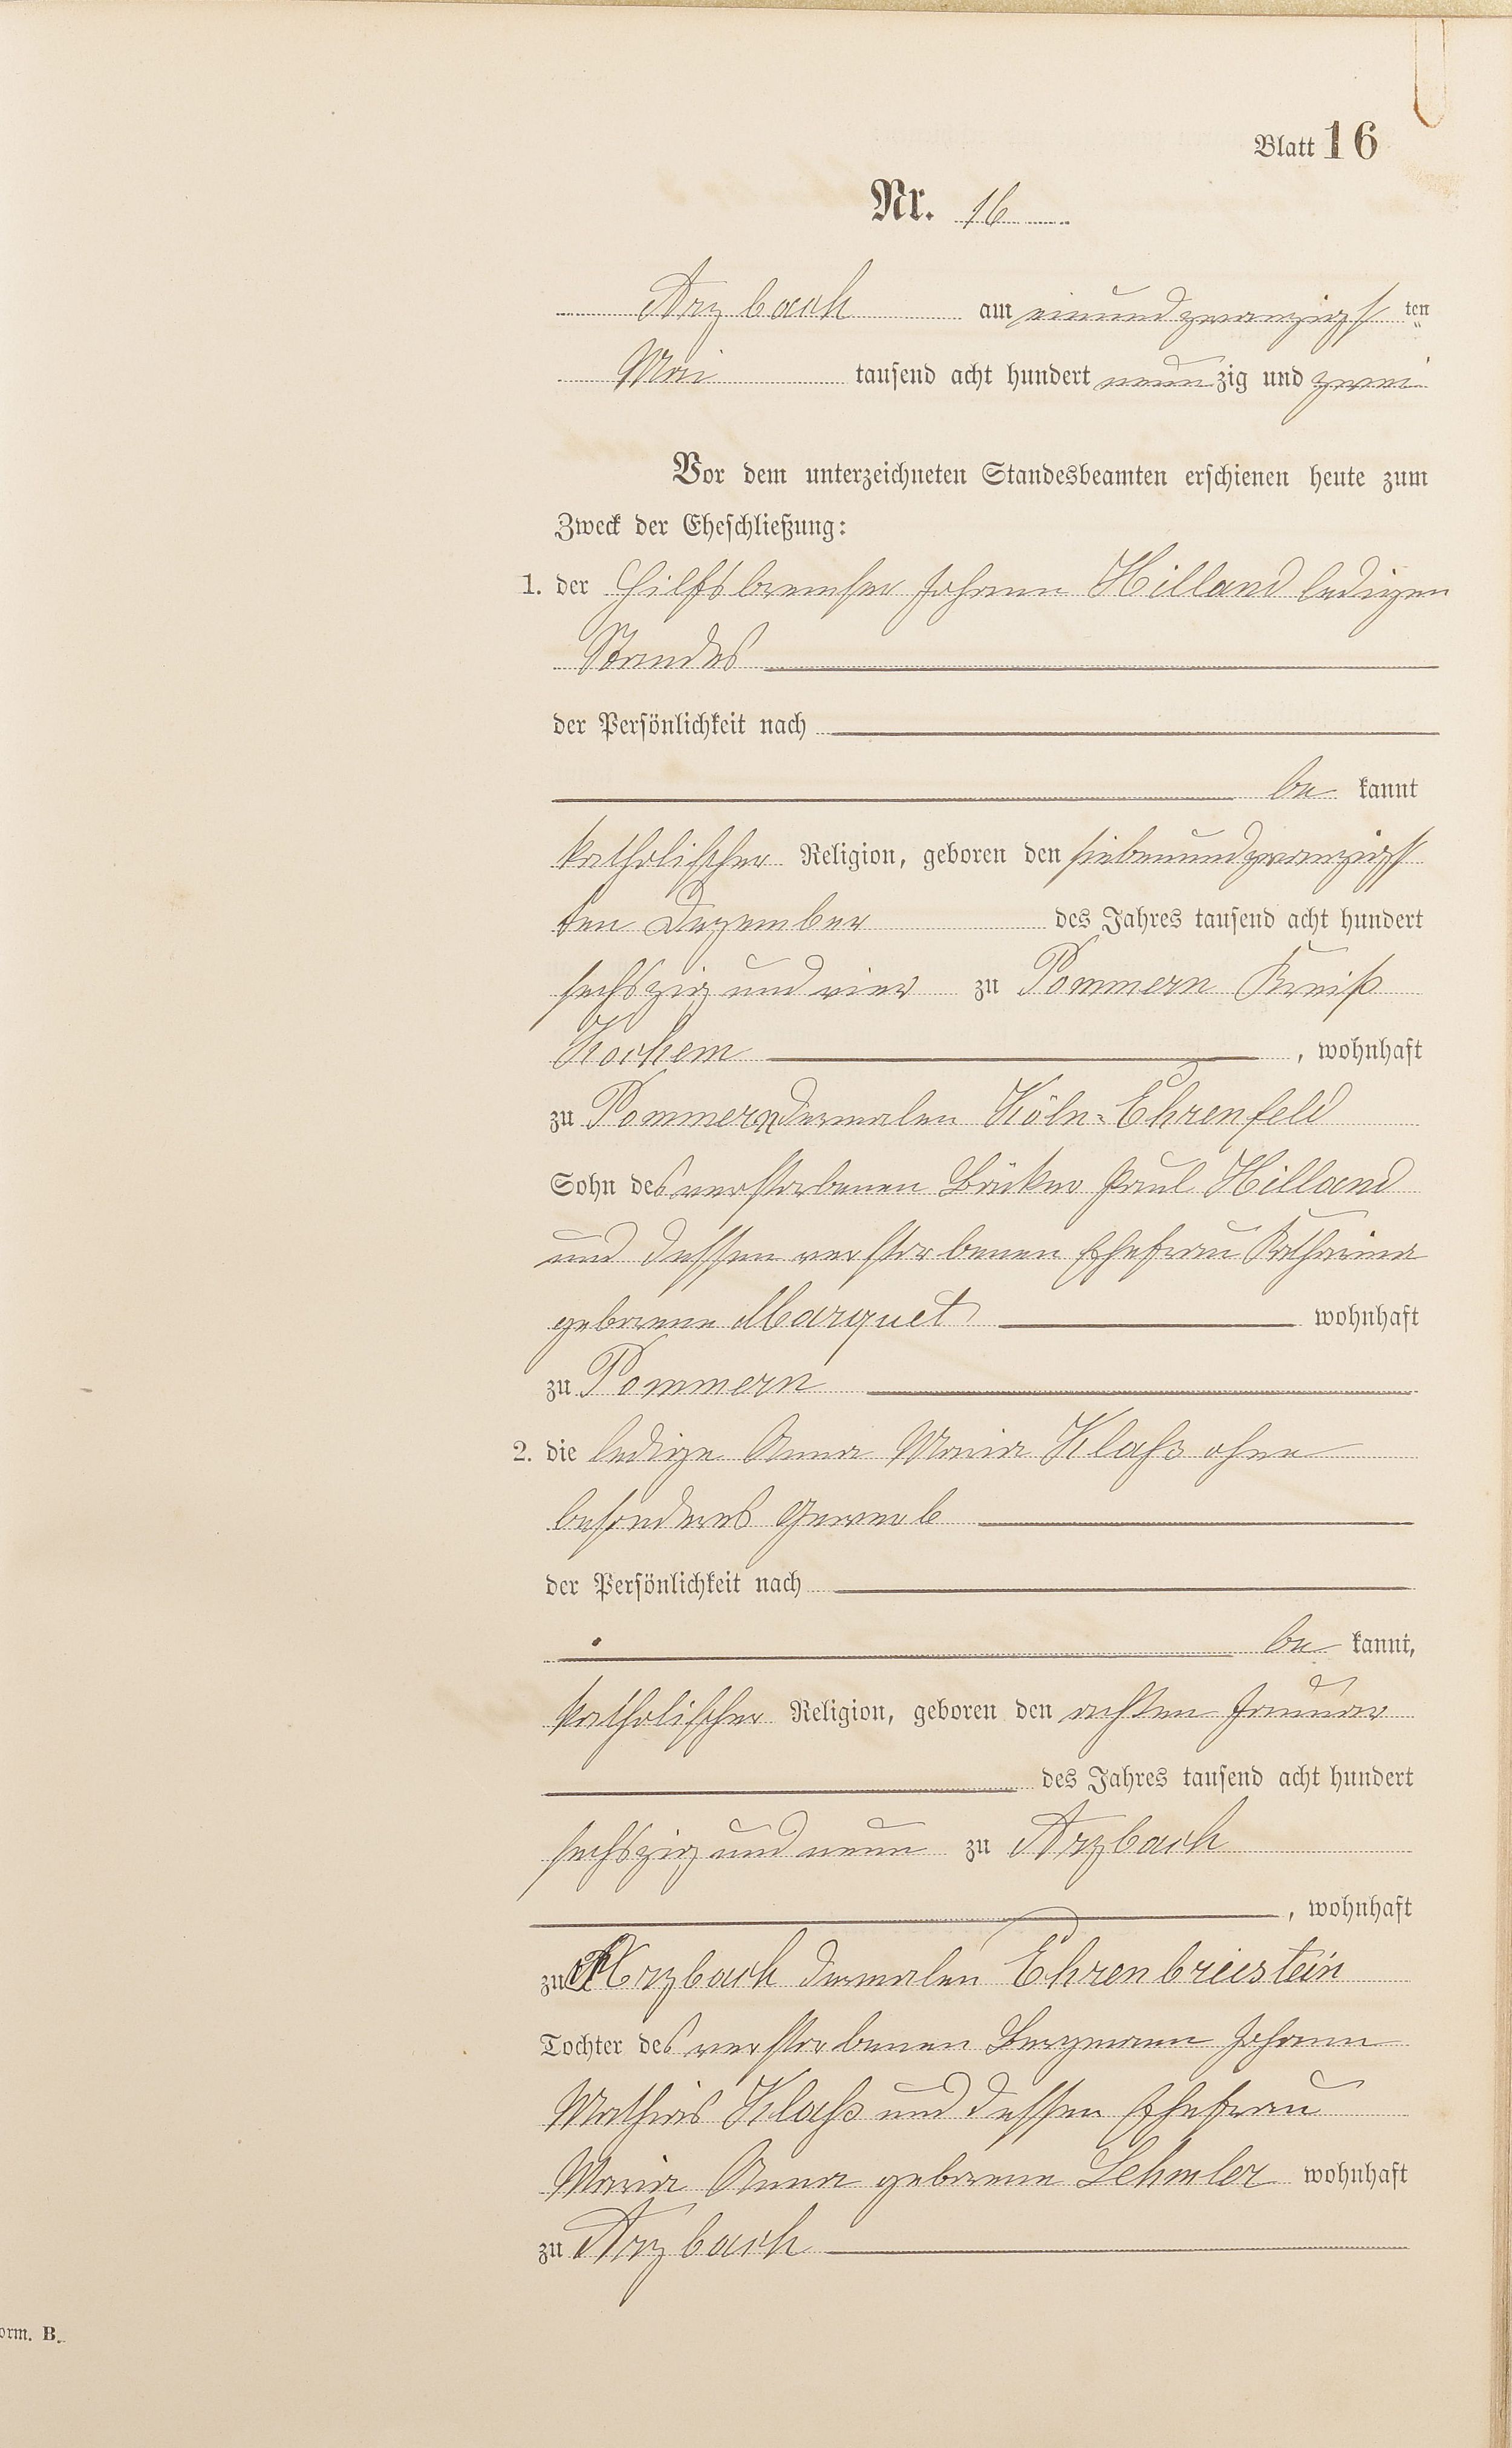 Blatt 16
Nr. 16
Arzbach am einundzwanzigsten
Mai tausend acht hundert neunzig und zwei
Vor dem unterzeichneten Standesbeamten erschienen heute zum
Zweck der Eheschließung:
1. der Hilfsbremser Johann Hilland ledigen
Standes
der Persönlichkeit nach
be kannt
katholischer Religion, geboren den siebenundzwanzigst
ten Dezember des Jahres tausend acht hundert
sechszig und vier zu Pommern Kreiß
Kochem, wohnhaft
zu Pommern dermalen Köln-Ehrenfeld
Sohn des verstorbenen Paul Hilland
und dessen verstorbenen Ehefrau Katharina
geborene Marquet wohnhaft
zu Pommern
2. die ledige Anna Maria Klaß ohne
besonderes Gewerb
der Persönlichkeit nach
be kannt,
katholischer Religion, geboren den achten Januar
des Jahres tausend acht hundert
sechszig und neun zu Arzbach
, wohnhaft
zu Arzbach dermalen Ehrenbreistein
Tochter des verstorbenen Bergmann Johann
Mathias Klaß und dessen Ehefrau
Maria Anna geborene Lehmler wohnhaft
zu Arzbach
orm. B.